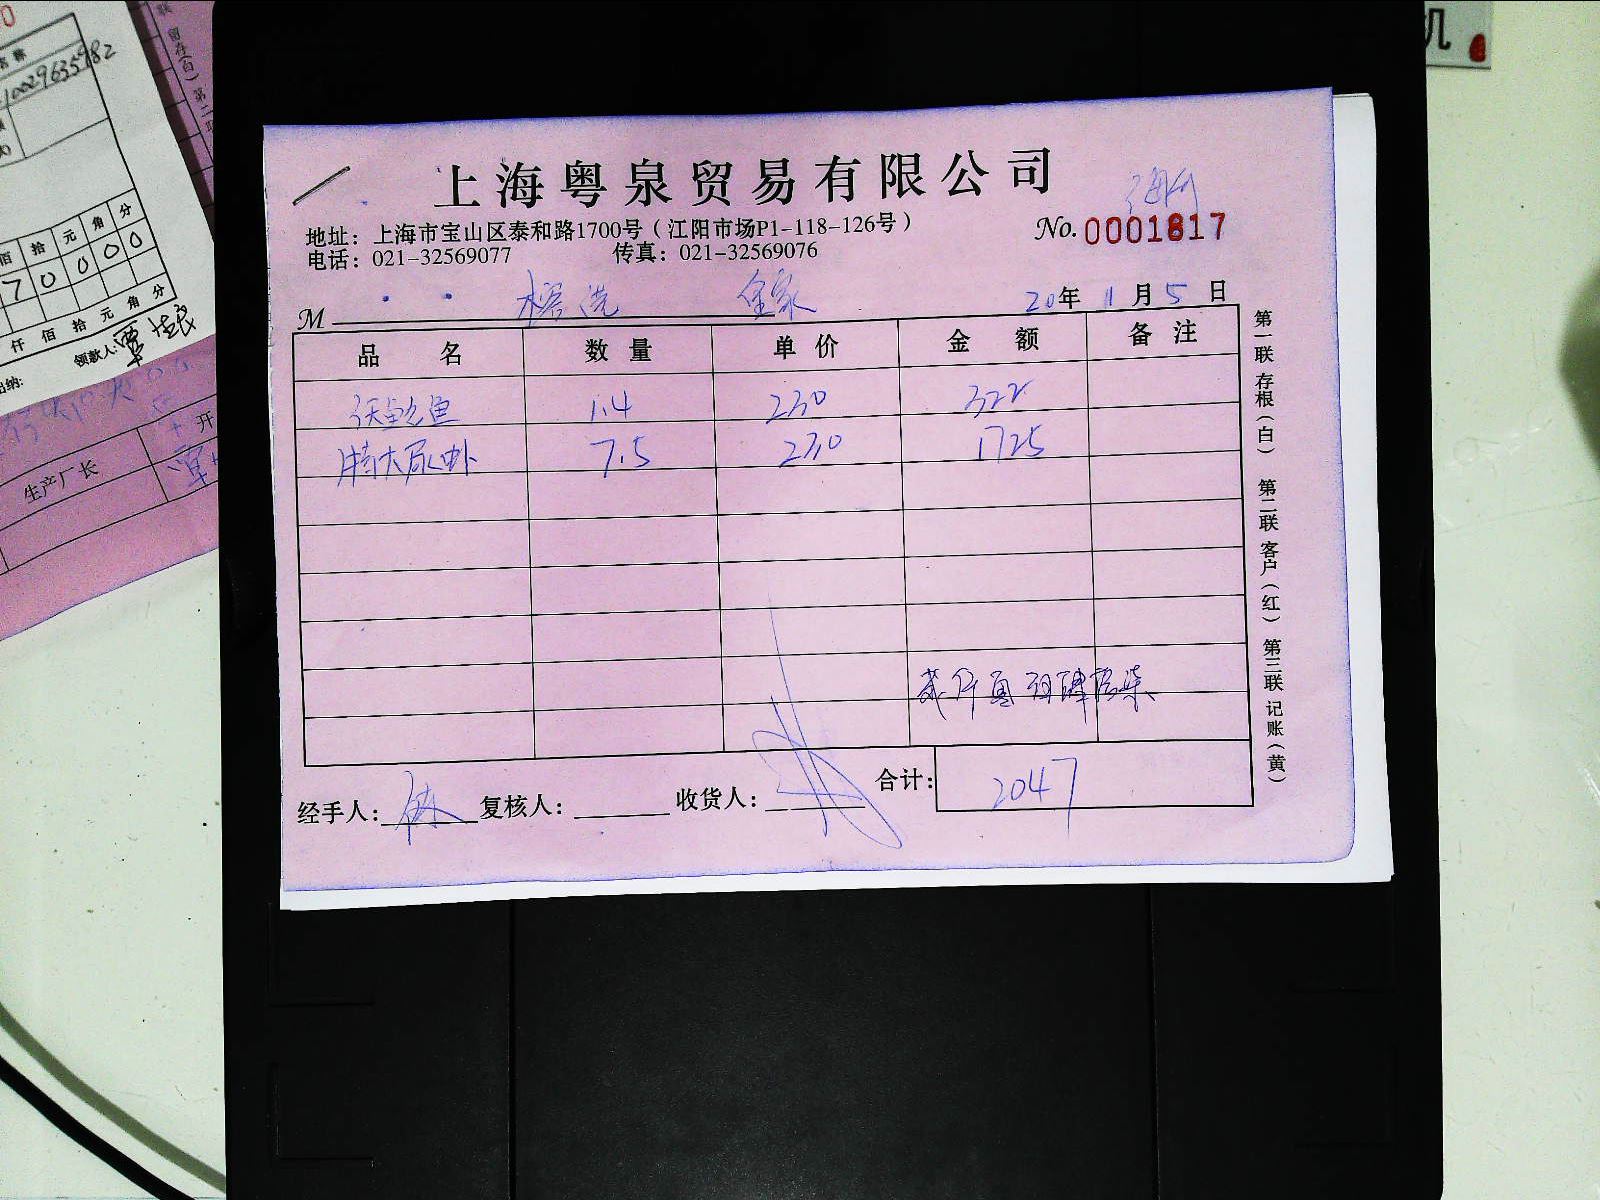 上海粤泉贸易有限公司
地址：上海市宝山区泰和路1700号（江阳市场P1-118-126号）
No. 0001817
电话：021-32569077 传真：021-32569076
M 榕港 金家 20年 11月 5日
品名 数量 单价 金额 备注
鲍鱼 1.4 230 322
特大尿虾 7.5 230 1725
贰仟 零 肆拾柒
合计： 2047
经手人： 复核人： 收货人：
第一联 存根（白） 第二联 客户（红） 第三联 记账（黄）
10029635982
佰 拾 元 角 分
7 0 0 0 0
仟 佰 拾 元 角 分
领款人：
生产厂长
开
留存（白） 第二联
机